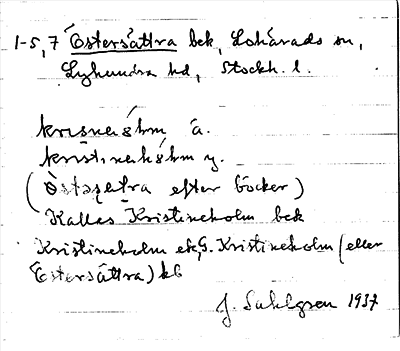 1-5, 7 Östersättra bek, Lohärads sn,
Lyhundra hd, Stockh. l.
a.
y.
( efter böcker)
Kallas Kristineholm bek
Kristineholm ek, G. Kristineholm (eller
Östersättra) kb
J. Sahlgren 1937